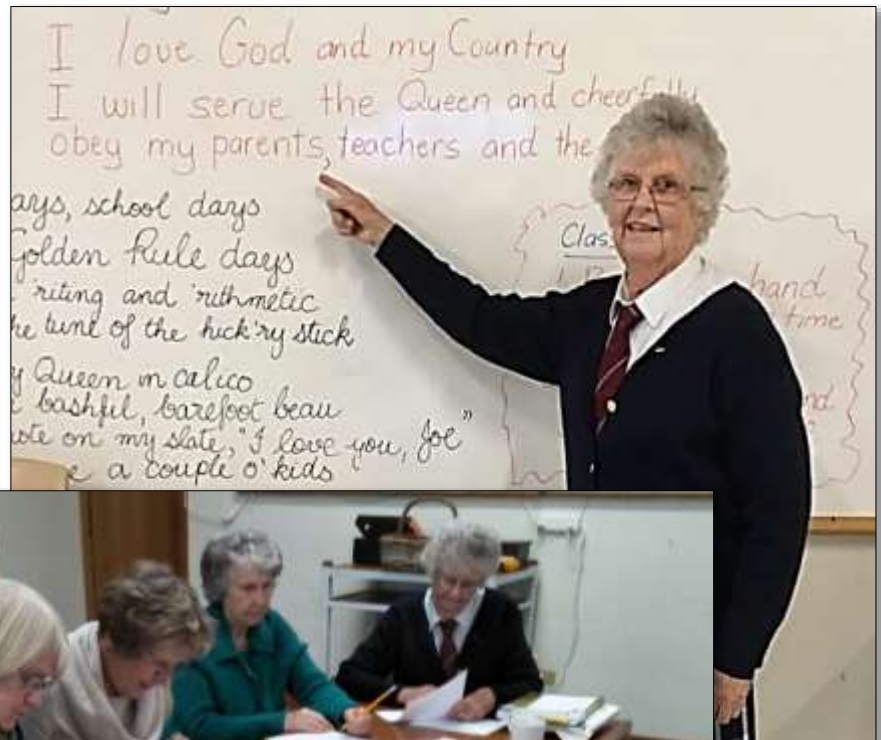 I love God and my Country
I will serve the Queen and cheerfully
obey my parents, teachers and the
ays, school days
Golden Rule days
'riting and 'rithmetic
he tune of the hick'ry stick
y Queen in calico
bashful, barefoot beau
ote on my slate, "I love you, Joe"
e a couple o' kids
Clas
hand
time
nd